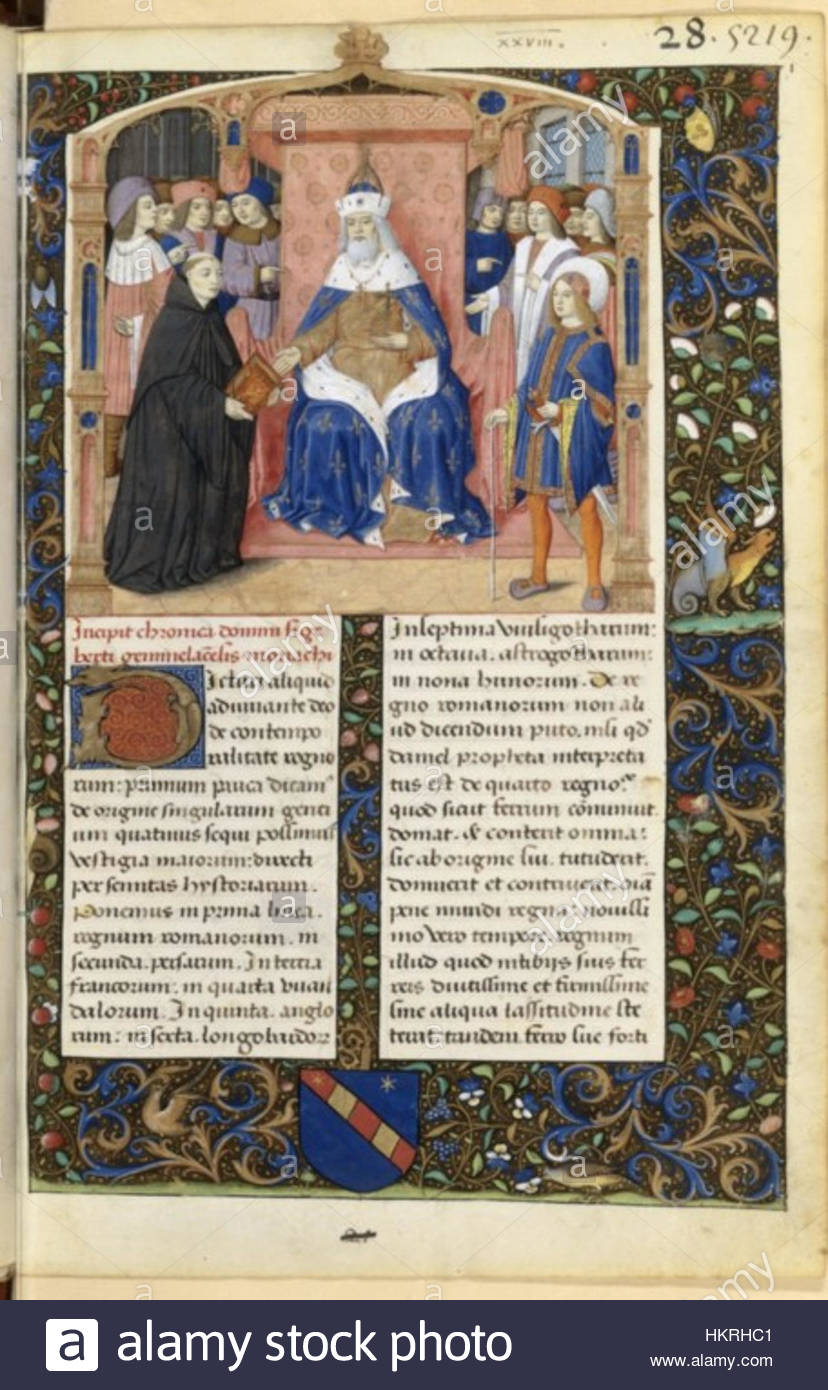 XXVIII.
28. 5219.
1
Incipit chronica domini sige
berti gemmelacẽsis monachi
Dicturi aliquid
adiuuante deo
de contempo
ralitate regno
rum: primum pauca dicam
de origine singularum genti
um quatinus sequi possimus
vestigia maiorum: directi
per semitas hystoriarum.
Ponemus in prima linea.
regnum romanorum. in
secunda. persarum. In tertia
francorum: in quarta vuan
dalorum. In quinta. anglo
rum: in sexta. longobardor
In septima vuisigotharum:
in octaua. astrogotharum:
in nona hunorum. De re
gno romanorum non ali
ud dicendum puto. nisi qd
daniel propheta interpreta
tus est de quarto regno.
quod sicut ferrum cõminuit.
domat. & conterit omnia:
sic ab origine sui. tutuderit.
domuerit et contriuerit oĩa
pene mundi regna: nouissi
mo vero tempore regnum
illud quod nitibus suis fer
reis diutissime et firmissime
sine aliqua lassitudine ste
terit. tandem ferro sue forti
alamy
alamy stock photo
HKRHC1
www.alamy.com